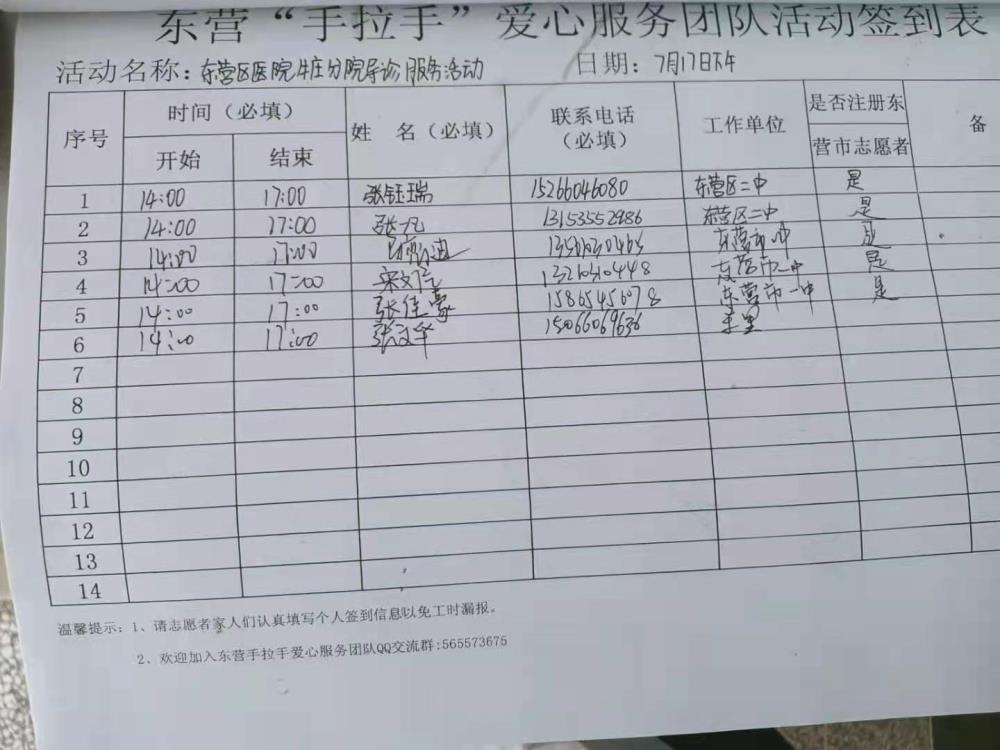 东营“手拉手”爱心服务团队活动签到表
活动名称：东营区医院牛庄分院导诊服务活动 日期：7月17日下午
序号 时间（必填） 姓 名（必填） 联系电话（必填） 工作单位 是否注册东营市志愿者 备
开始 结束
1 14:00 17:00 张钰瑞 15266046080 东营区二中 是
2 14:00 17:00 张一凡 13153552986 东营区二中 是
3 14:00 17:00 东营市一中 是
4 14:00 17:00 13210310448 东营市一中 是
5 14:00 17:00 张佳豪 15865456078 东营市一中 是
6 14:00 17:00 张文华 15066069636
7
8
9
10
11
12
13
14
温馨提示：1、请志愿者家人们认真填写个人签到信息以免工时漏报。
2、欢迎加入东营手拉手爱心服务团队QQ交流群:565573675